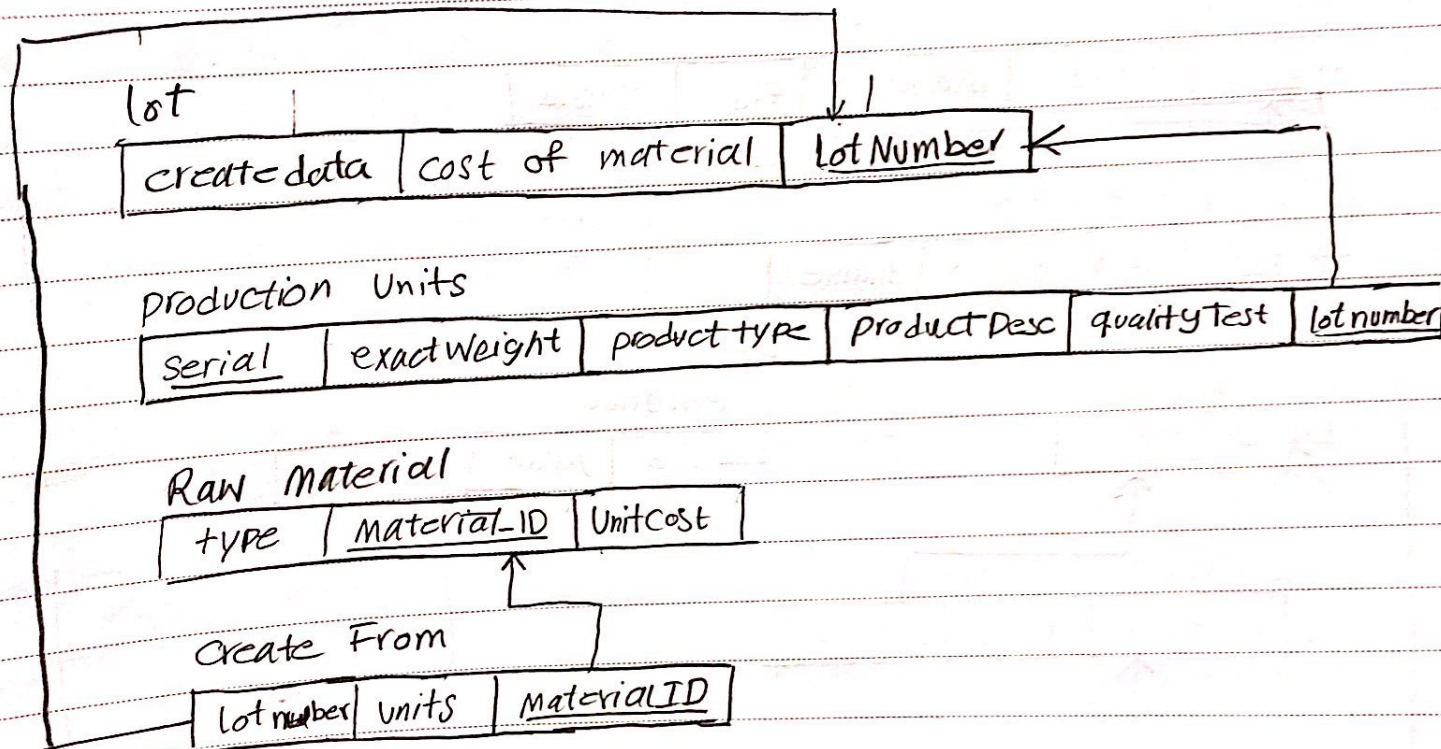 lot
createdata cost of material LotNumber
production Units
serial exactWeight product type productDesc qualityTest lotnumber
Raw Material
type Material_ID UnitCost
Create From
lot number units MaterialID